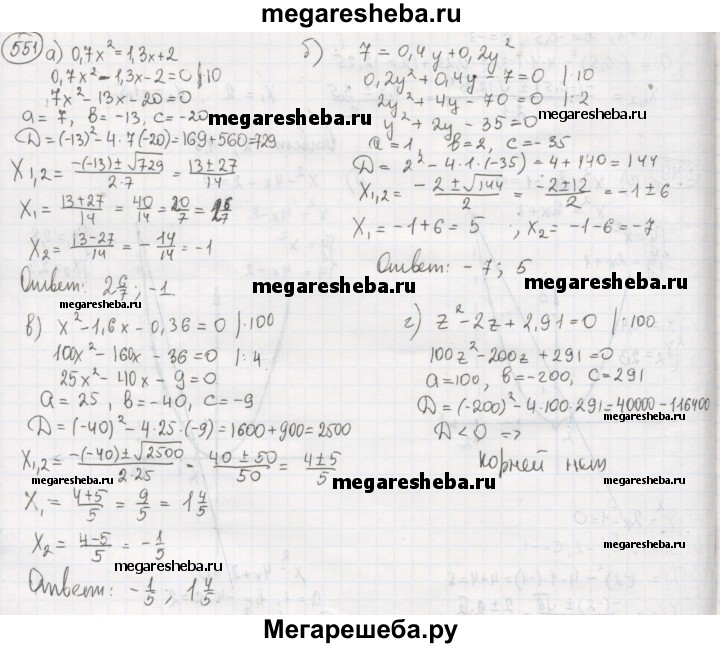 megaresheba.ru
551 а) 0,7x² = 1,3x + 2
0,7x² - 1,3x - 2 = 0 |·10
7x² - 13x - 20 = 0
a = 7, b = -13, c = -20
D = (-13)² - 4·7(-20) = 169 + 560 = 729
X₁,₂ = (-(-13) ± √729)/(2·7) = (13 ± 27)/14
X₁ = (13+27)/14 = 40/14 = 20/7 =
X₂ = (13-27)/14 = -14/14 = -1
Ответ: 2 6/7; -1
megaresheba.ru
б) 7 = 0,4y + 0,2y²
0,2y² + 0,4y - 7 = 0 |·10
2y² + 4y - 70 = 0 |:2
megaresheba.ru
y² + 2y - 35 = 0
a = 1, b = 2, c = -35
D = 2² - 4·1·(-35) = 4 + 140 = 144
X₁,₂ = (-2 ± √144)/2 = (-2 ± 12)/2 = -1 ± 6
X₁ = -1 + 6 = 5 ; X₂ = -1 - 6 = -7
Ответ: -7; 5
megaresheba.ru
megaresheba.ru
в) x² - 1,6x - 0,36 = 0 |·100
100x² - 160x - 36 = 0 |:4
25x² - 40x - 9 = 0
a = 25, b = -40, c = -9
D = (-40)² - 4·25·(-9) = 1600 + 900 = 2500
X₁,₂ = (-(-40) ± √2500)/(2·25) = (40 ± 50)/50 = (4 ± 5)/5
X₁ = (4+5)/5 = 9/5 = 1 4/5
X₂ = (4-5)/5 = -1/5
megaresheba.ru
Ответ: -1/5, 1 4/5
г) z² - 2z + 2,91 = 0 |·100
100z² - 200z + 291 = 0
a = 100, b = -200, c = 291
D = (-200)² - 4·100·291 = 40000 - 116400
D < 0 =>
Корней нет
megaresheba.ru
megaresheba.ru
megaresheba.ru
Мегарешеба.ру